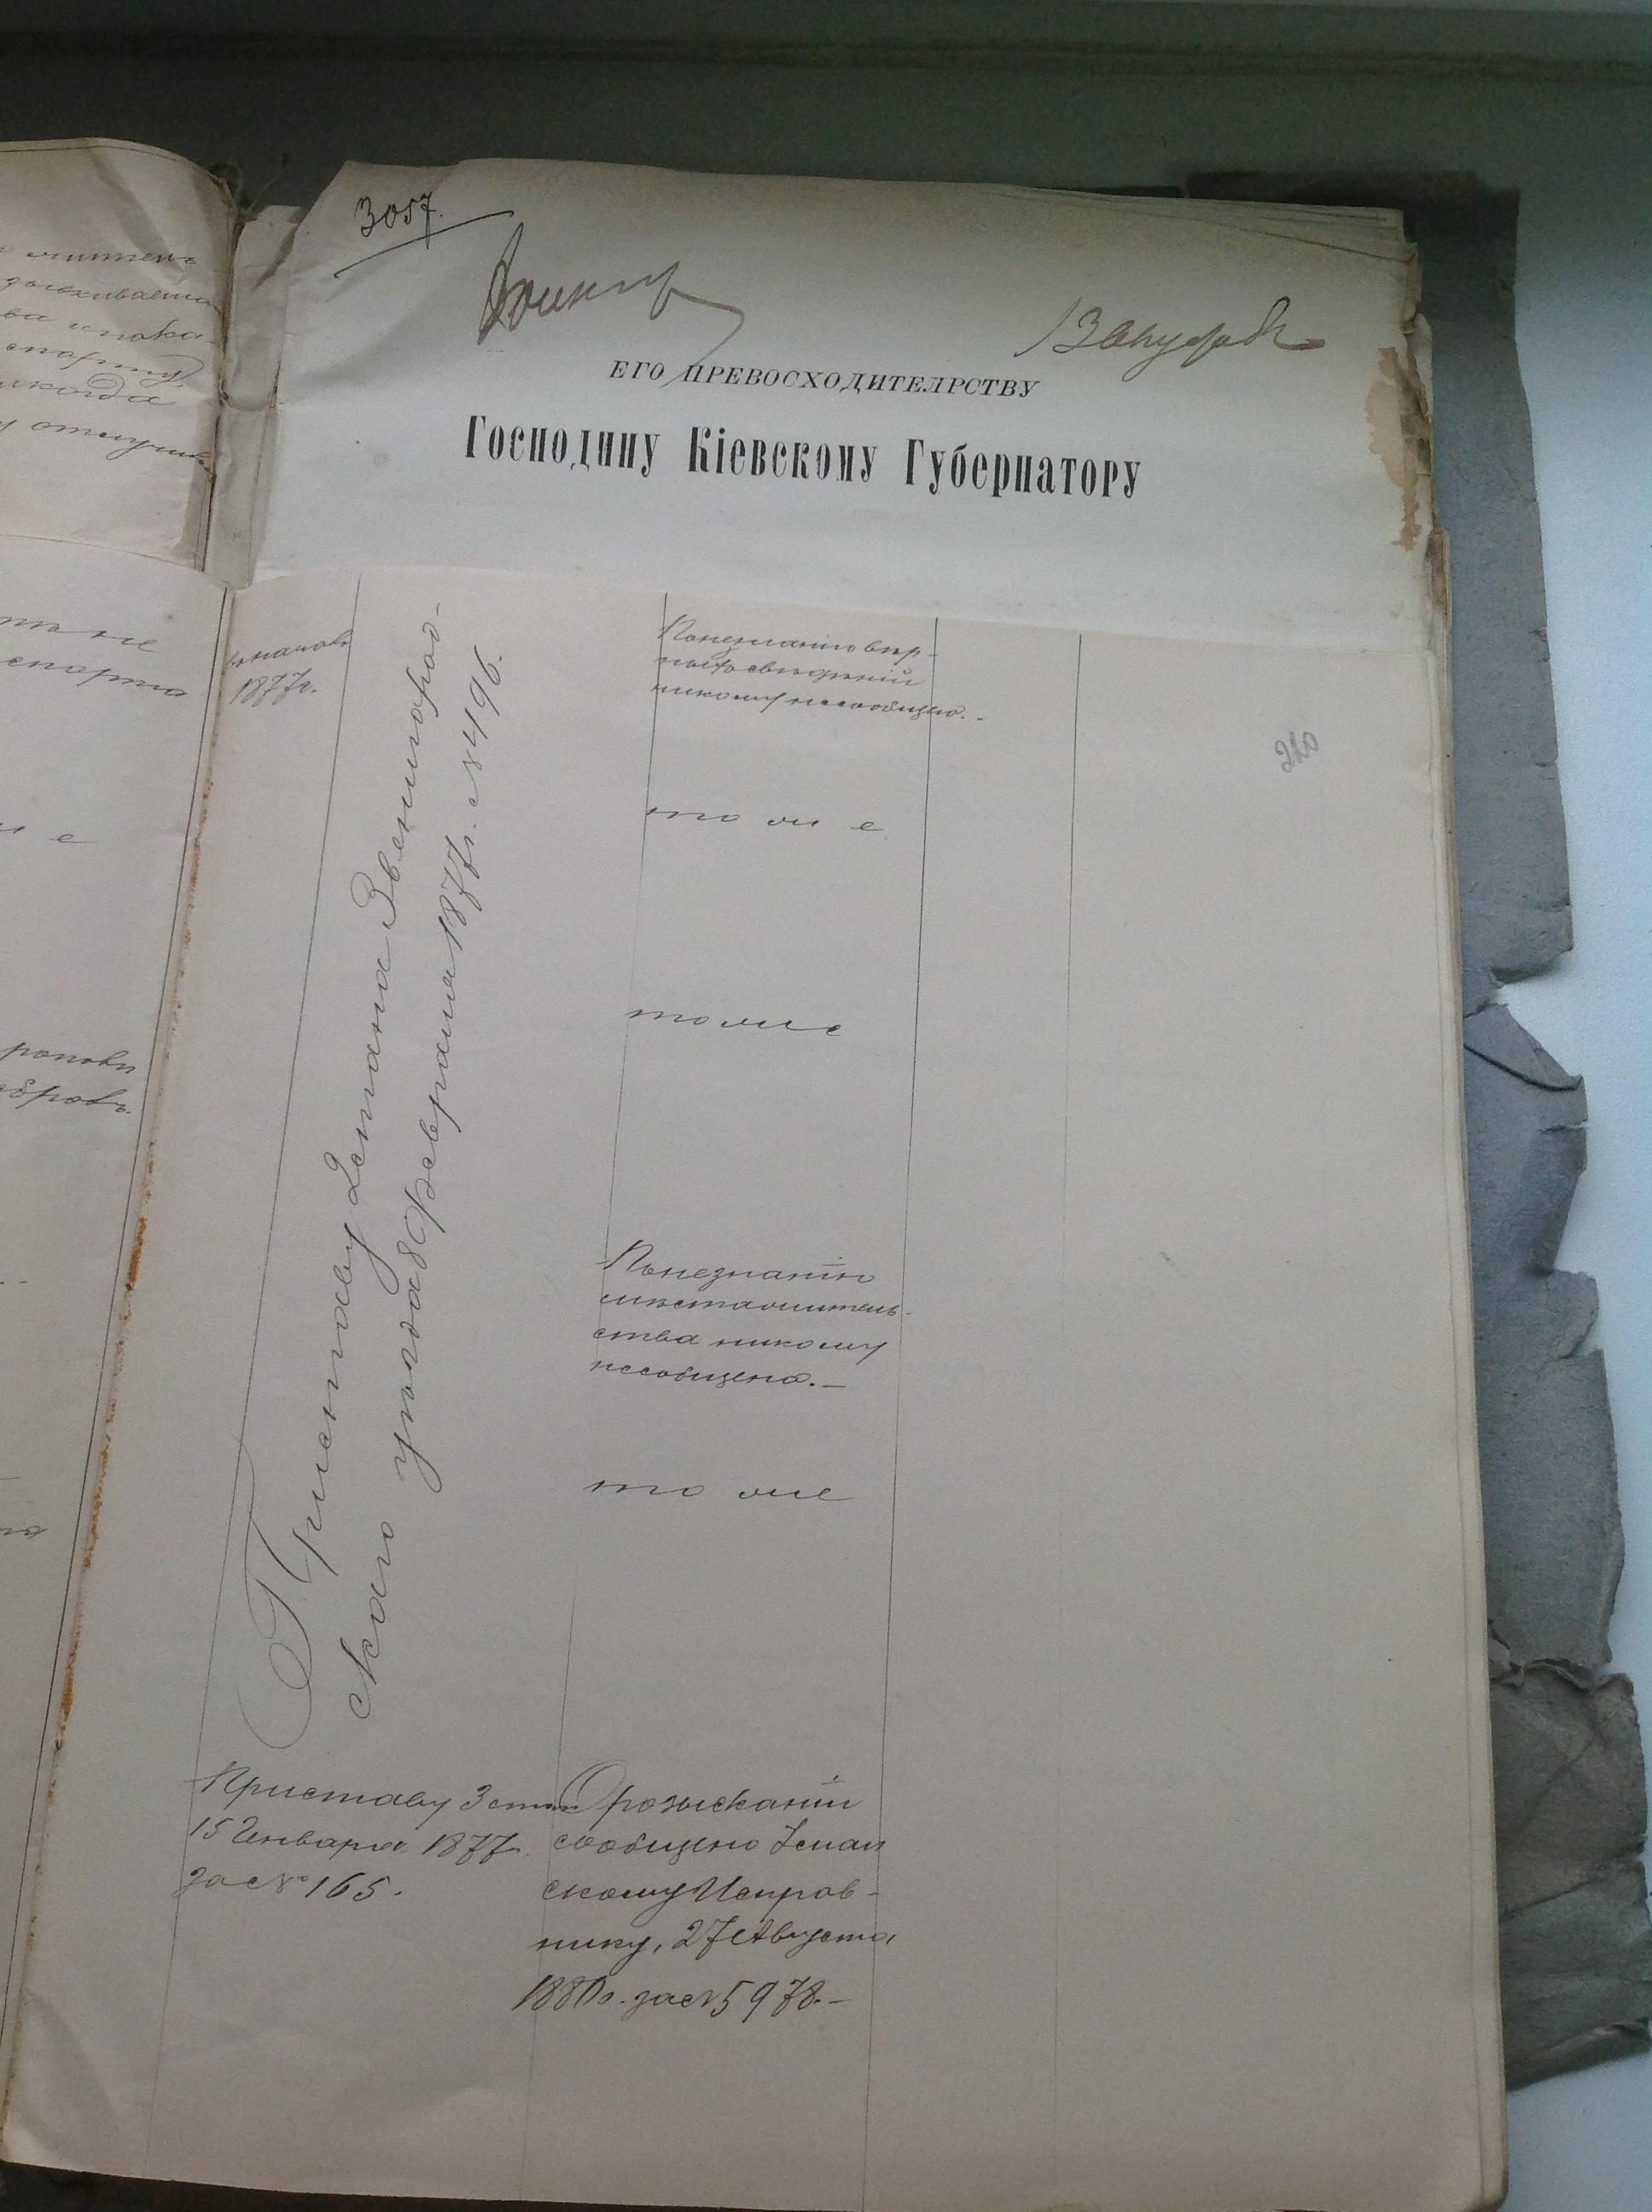 3057.
ЕГО ПРЕВОСХОДИТЕЛРСТВУ
Господину Кіевскому Губернатору
отлучки
1877г.
Приставу 2 стана Звенигород-
скаго уѣзда 8 Февраля 1877г. № 496.
По незнанію вѣр-
ныхъ свѣдѣній
никому несообщено. -
220
то же
то же
По незнанію
мѣстажитель-
ства никому
несообщено. -
то же
Приставу 3 стана
15 Января 1877г.
за № 165.
О розысканіи
сообщено Уман
скому Исправ-
нику, 27 Августа
1880г. за № 5978. -